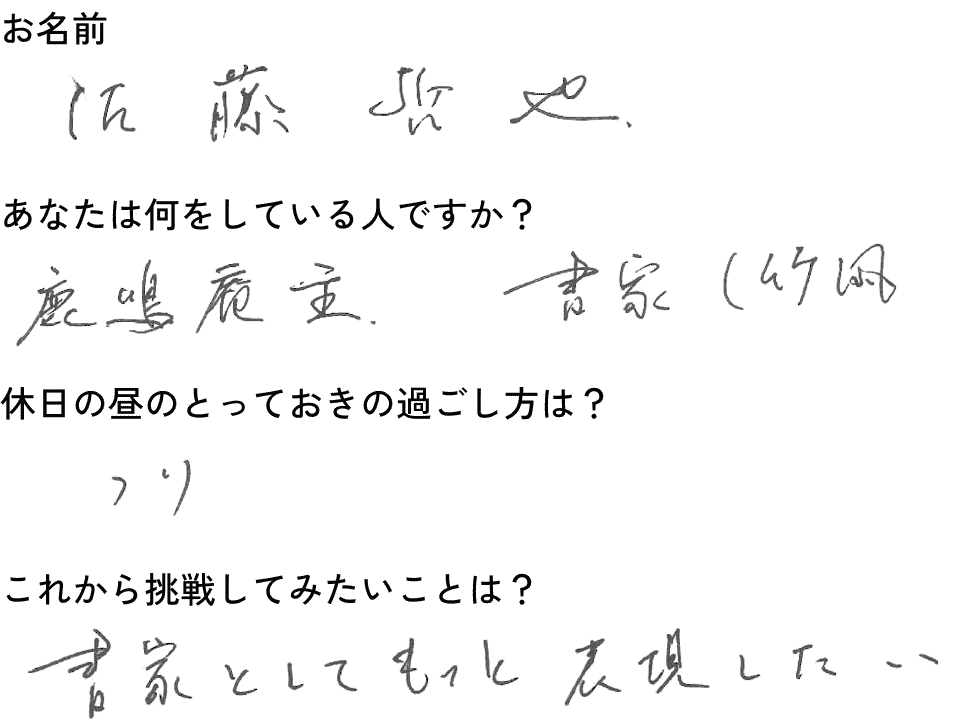 お名前
佐藤哲也.
あなたは何をしている人ですか？
鹿鳴庵主. 書家(竹
休日の昼のとっておきの過ごし方は？
つり
これから挑戦してみたいことは？
書家としてもっと表現したい